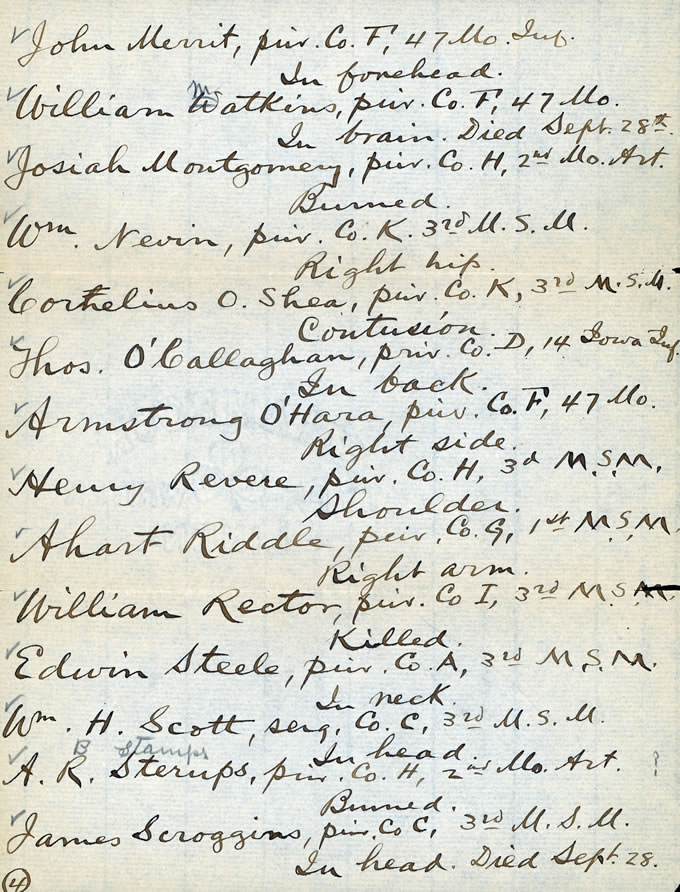 John Merrit, priv. Co. F, 47 Mo. Inf.
In forehead.
William Watkins, priv. Co. F, 47 Mo.
In brain. Died Sept. 28th.
Josiah Montgomery, priv. Co. H, 2nd Mo. Art.
Burned.
Wm. Nevin, priv. Co. K. 3rd M. S. M.
Right hip.
Corthelius O. Shea, priv. Co. K, 3rd M. S. M.
Contusion.
Thos. O'Callaghan, priv. Co. D, 14 Iowa Inf.
In back.
Armstrong O'Hara, priv. Co. F, 47 Mo.
Right side.
Henry Revere, priv. Co. H, 3d M. S. M.
Shoulder.
Ahart Riddle, priv. Co. G, 1st M. S. M.
Right arm.
William Rector, priv. Co I, 3rd M. S. M.
Killed.
Edwin Steele, priv. Co. A, 3rd M. S. M.
In neck.
Wm. H. Scott, serg. Co. C, 3rd M. S. M.
In head.
B Stamps
A. R. Sterups, priv. Co. H, 2nd Mo. Art. ?
Burned.
James Scroggins, priv. Co C, 3rd M. S. M.
In head. Died Sept. 28.
4